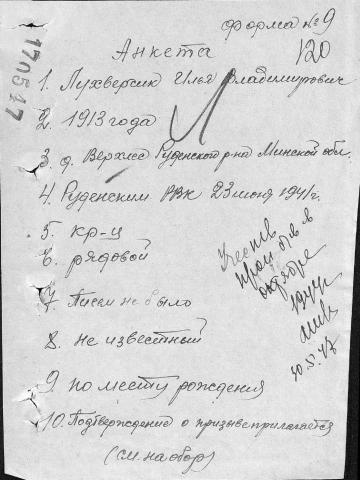 форма № 9
120
170517
Анкета
1. Лухверсик Илья Владимирович
2. 1913 года
3. д. Верхмес Руденского р-на Минской обл.
4. Руденским РВК 23 июня 1941 г.
5. кр-ц
6. рядовой
7. Писем не было
8. не известный
9. по месту рождения
10. Подтверждение о призыве прилагается
(см. на обор)
октябре
10.5.47